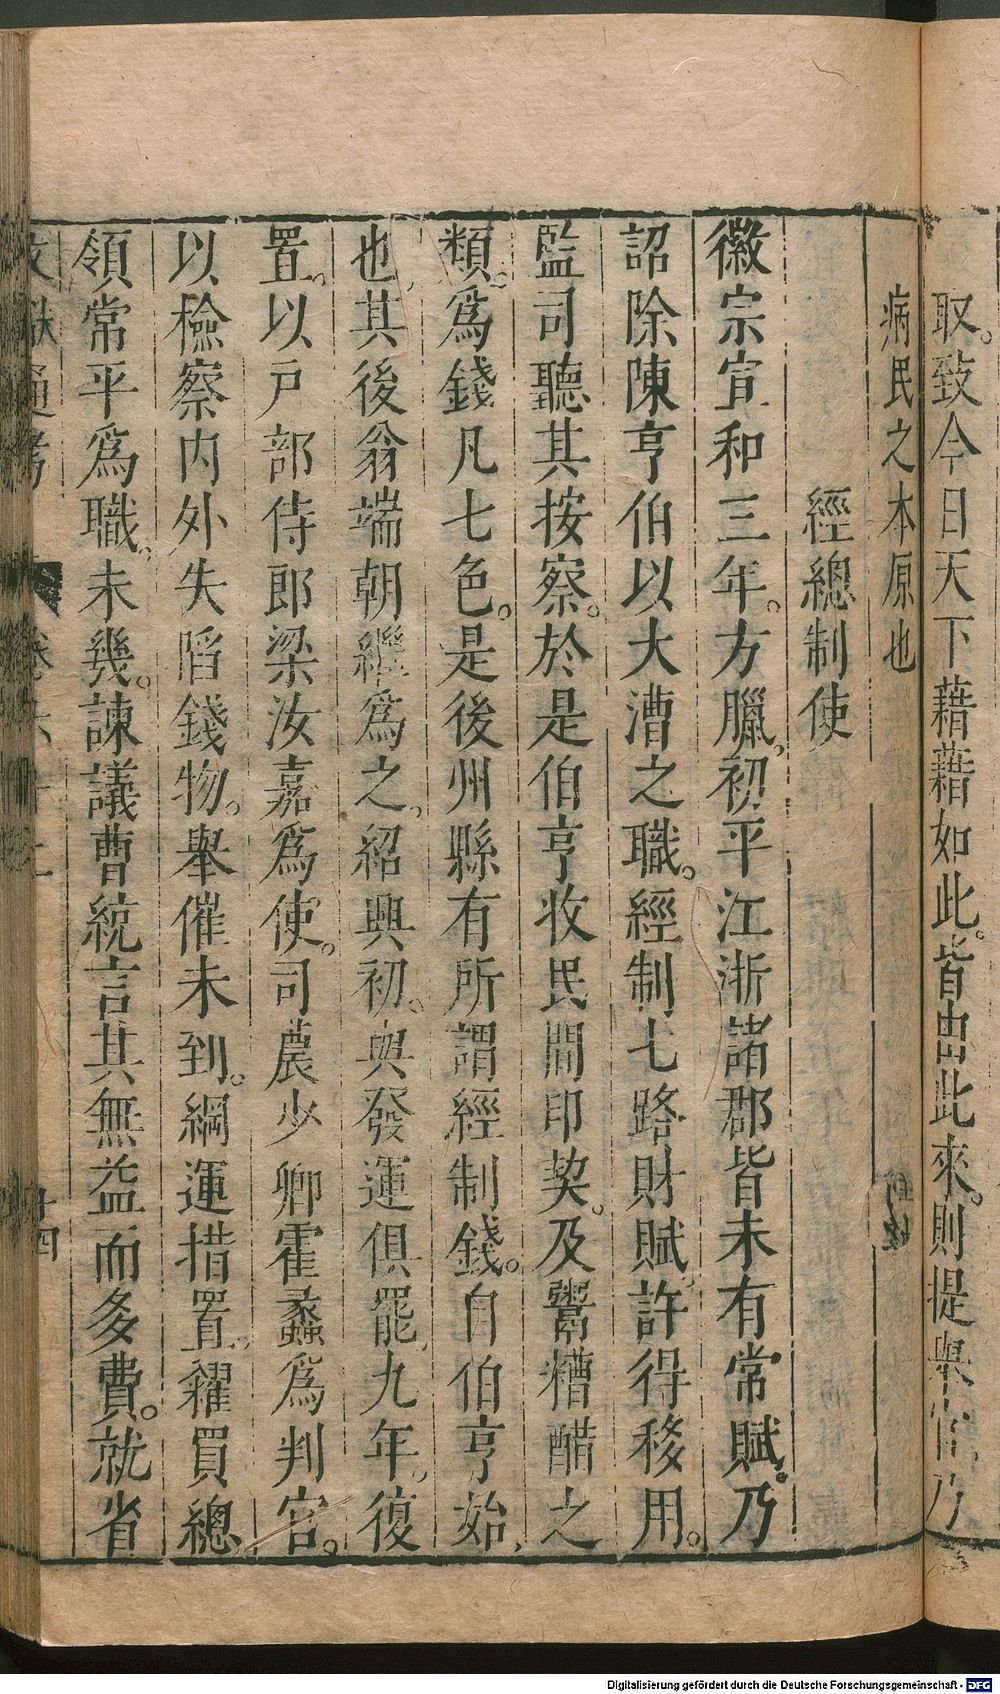 取。致今日天下藉藉如此。皆由此來。則提舉官乃
病民之本原也
經總制使
徽宗宣和三年。方臘初平江浙諸郡皆未有常賦。乃
詔除陳亨伯以大漕之職。經制七路財賦。許得移用。
監司聽其按察。於是伯亨收民間印契。及鬻糟醋之
類。爲錢凡七色。是後州縣有所謂經制錢。自伯亨始
也。其後翁端朝繼爲之。紹興初。與發運俱罷。九年。復
置。以戸部侍郎梁汝嘉爲使。司農少卿霍蠡爲判官。
以檢察内外失陷錢物。舉催未到。綱運措置。糴買總
領常平爲職。未幾。諫議曹統言其無益而多費。就省
文獻通考
十四
Digitalisierung gefördert durch die Deutsche Forschungsgemeinschaft - DFG